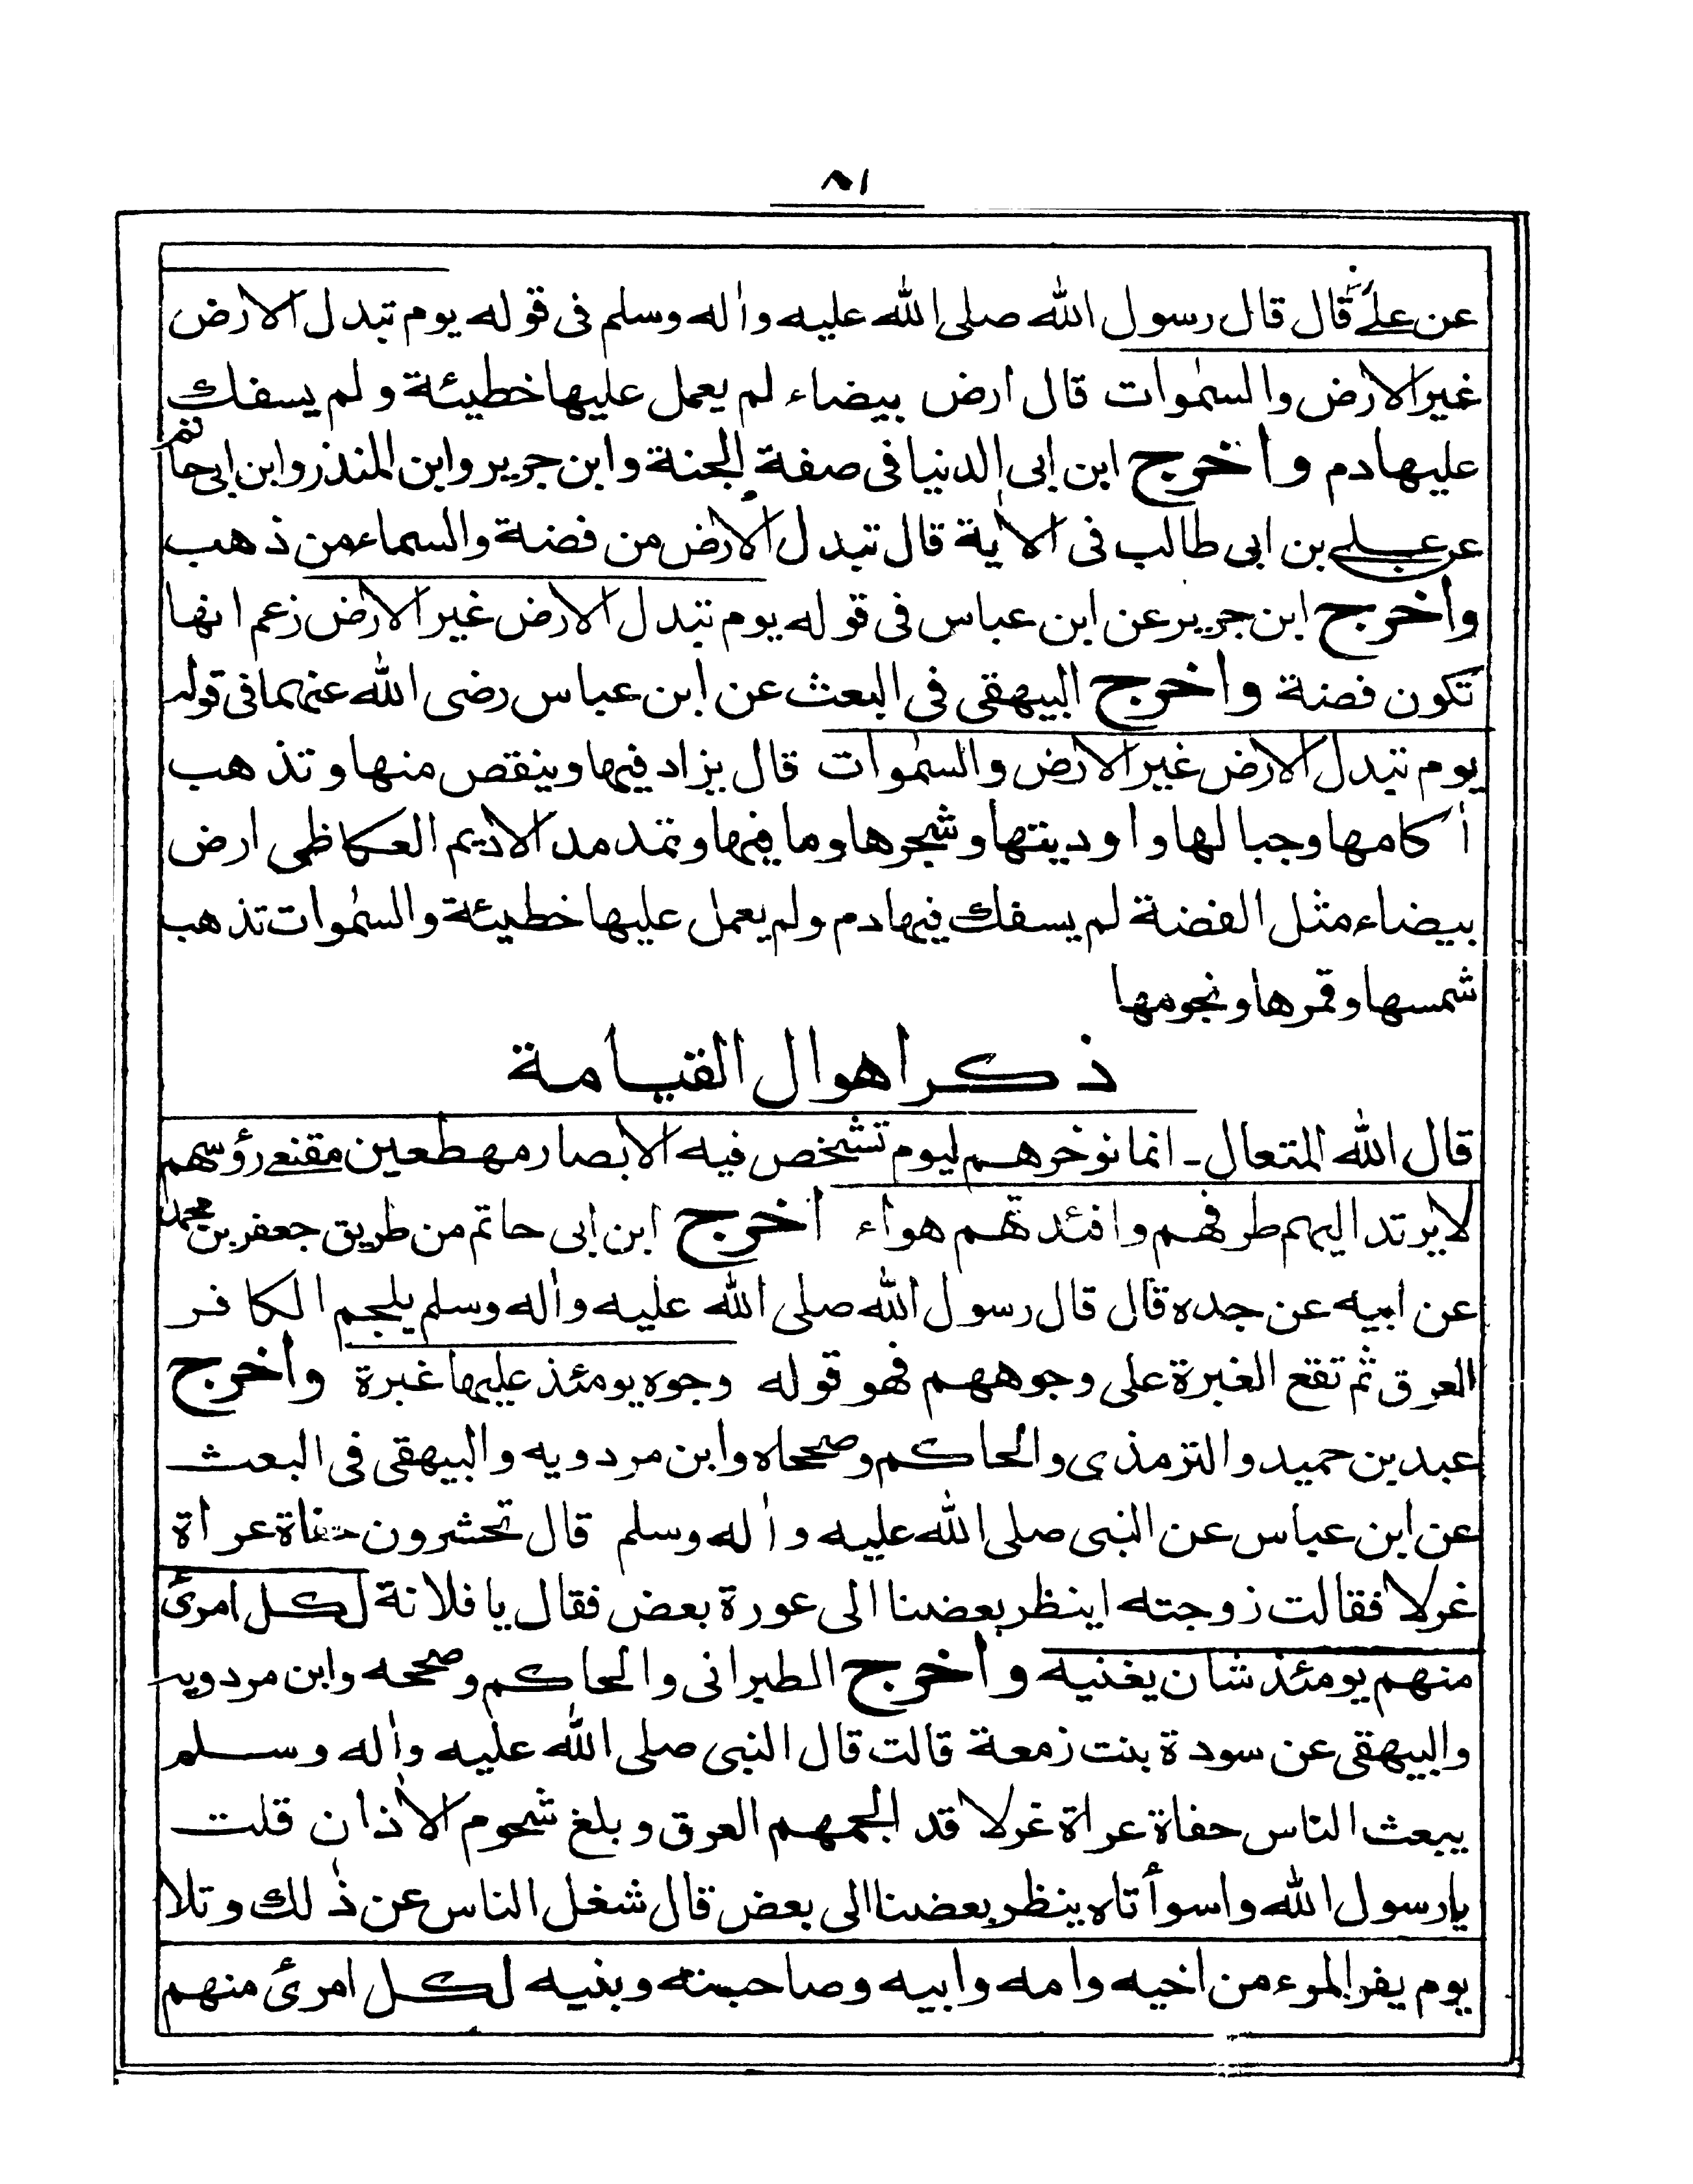 ٨١
عن علیؓ قال قال رسول الله صلی الله علیه واٰله وسلم فی قوله یوم تبدل الارض
غیر الارض والسمٰوات قال ارض بیضاء لم یعمل علیها خطیئة ولم یسفك
علیها دم وأخرج ابن ابی الدنیا فی صفة الجنة وابن جریر وابن المنذر وابن ابی حاتم
عن علی بن ابی طالب فی الاٰیة قال تبدل الأرض من فضة والسماء من ذهب
وأخرج ابن جریر عن ابن عباس فی قوله یوم تبدل الارض غیر الارض زعم انها
تكون فضة وأخرج البیهقی فی البعث عن ابن عباس رضی الله عنهما فی قوله
یوم تبدل الارض غیر الارض والسمٰوات قال یزاد فیها وینقص منها وتذهب
أكامها وجبالها واودیتها وشجرها وما فیها وتمد مد الادیم العكاظی ارض
بیضاء مثل الفضة لم یسفك فیها دم ولم یعمل علیها خطیئة والسمٰوات تذهب
شمسها وقمرها ونجومها
ذكر اهوال القیامة
قال الله المتعال ـ انما نوخرهم لیوم تشخص فیه الابصار مهطعین مقنعی رؤسهم
لا یرتد الیهم طرفهم وافئدتهم هواء أخرج ابن ابی حاتم من طریق جعفر بن محمد
عن ابیه عن جده قال قال رسول الله صلی الله علیه واٰله وسلم یلجم الكافر
العرق ثم تقع الغبرة علی وجوههم فهو قوله وجوه یومئذ علیها غبرة وأخرج
عبد بن حمید والترمذی والحاكم وصححاه وابن مردویه والبیهقی فی البعث
عن ابن عباس عن النبی صلی الله علیه واٰله وسلم قال تحشرون حفاة عراة
غرلا فقالت زوجته اینظر بعضنا الی عورة بعض فقال یا فلانة لكل امرئ
منهم یومئذ شان یغنیه وأخرج الطبرانی والحاكم وصححه وابن مردویه
والبیهقی عن سودة بنت زمعة قالت قال النبی صلی الله علیه واٰله وسلم
یبعث الناس حفاة عراة غرلا قد الجمهم العرق وبلغ شحوم الاٰذان قلت
یا رسول الله واسوأتاه ینظر بعضنا الی بعض قال شغل الناس عن ذٰلك وتلا
یوم یفر المرء من اخیه وامه وابیه وصاحبته وبنیه لكل امرئ منهم